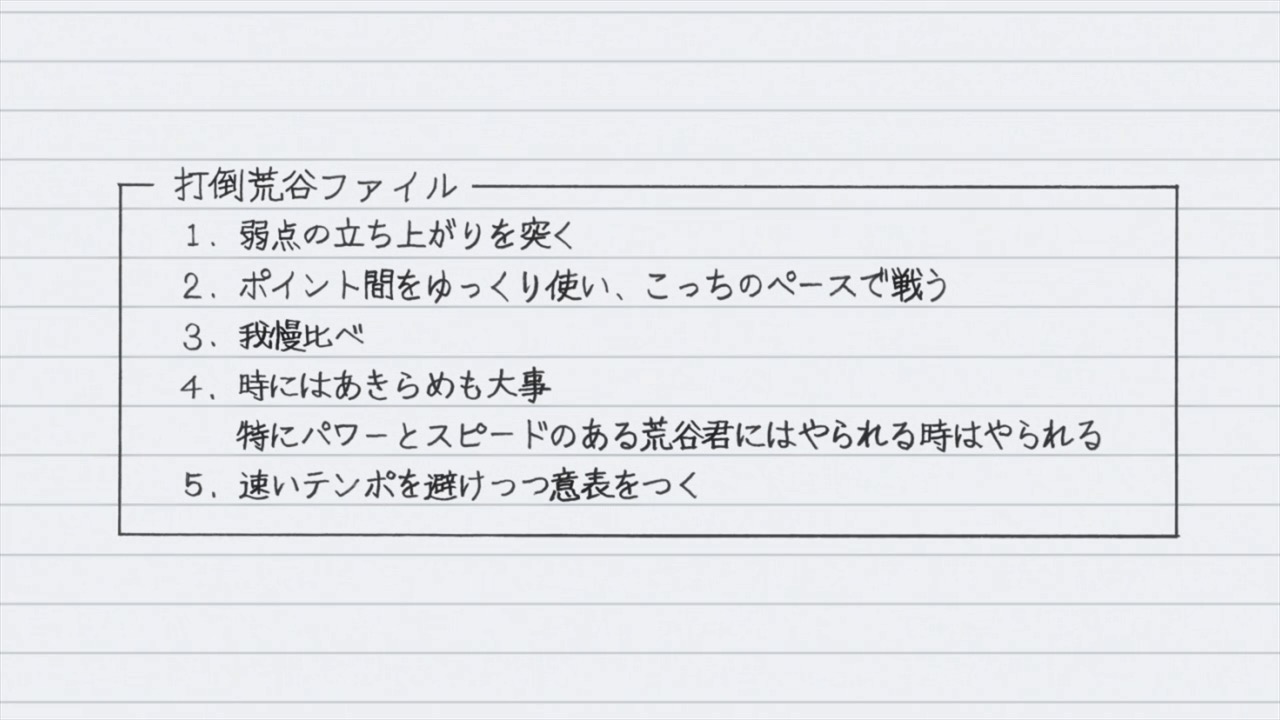 打倒荒谷ファイル
1. 弱点の立ち上がりを突く
2. ポイント間をゆっくり使い、こっちのペースで戦う
3. 我慢比べ
4. 時にはあきらめも大事
特にパワーとスピードのある荒谷君にはやられる時はやられる
5. 速いテンポを避けつつ意表をつく